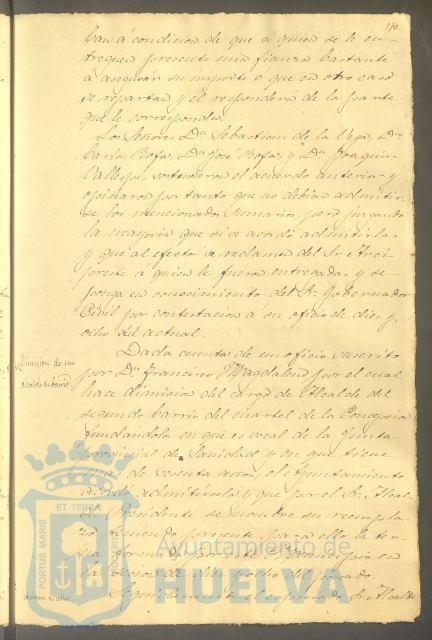 110
ban á condicion de que á quien se le en-
treguen presente una fianza bastante
á asegurar su importe o que en otro caso
se repartan y él responderá de la parte
que le corresponda.
Los Señores Dn Sebastian de la Vega, Dn
Carlos Rofa, Dn José Rofa, y Dn Joaquin
Vallejo, sostuvieron el acuerdo anterior y
opinaron por tanto que no debian admitir-
se los mencionados sumarios pero
la mayoria que si se acordó admitirlas
y que al efecto se reclamen del Sr. Arci-
preste á quien le fueron entregadas y se
ponga en conocimiento del Sr. Gobernador
Civil por contestacion a su oficio de diez y
ocho del actual.
Dimision de un
alcalde de barrio
Dada cuenta de un oficio suscrito
por Dn Francisco Magdalena por el cual
hace dimision del cargo de Alcalde del
segundo barrio del cuartel de la Concepcion
fundandola en que es vocal de la Junta
provincial de Sanidad y en que tiene
mas de sesenta años, el Ayuntamiento
acordó admitirsela y que por el Sr. Alcal-
de Presidente se nombre su reempla-
zo teniendo presente para ello la ter-
na
la sesion de diez y ocho del pasado.
Seguidamente el espresado Sr. Alcalde
PORTUS MARIS
ET TERRÆ
CUSTODIA
Ayuntamiento de
HUELVA